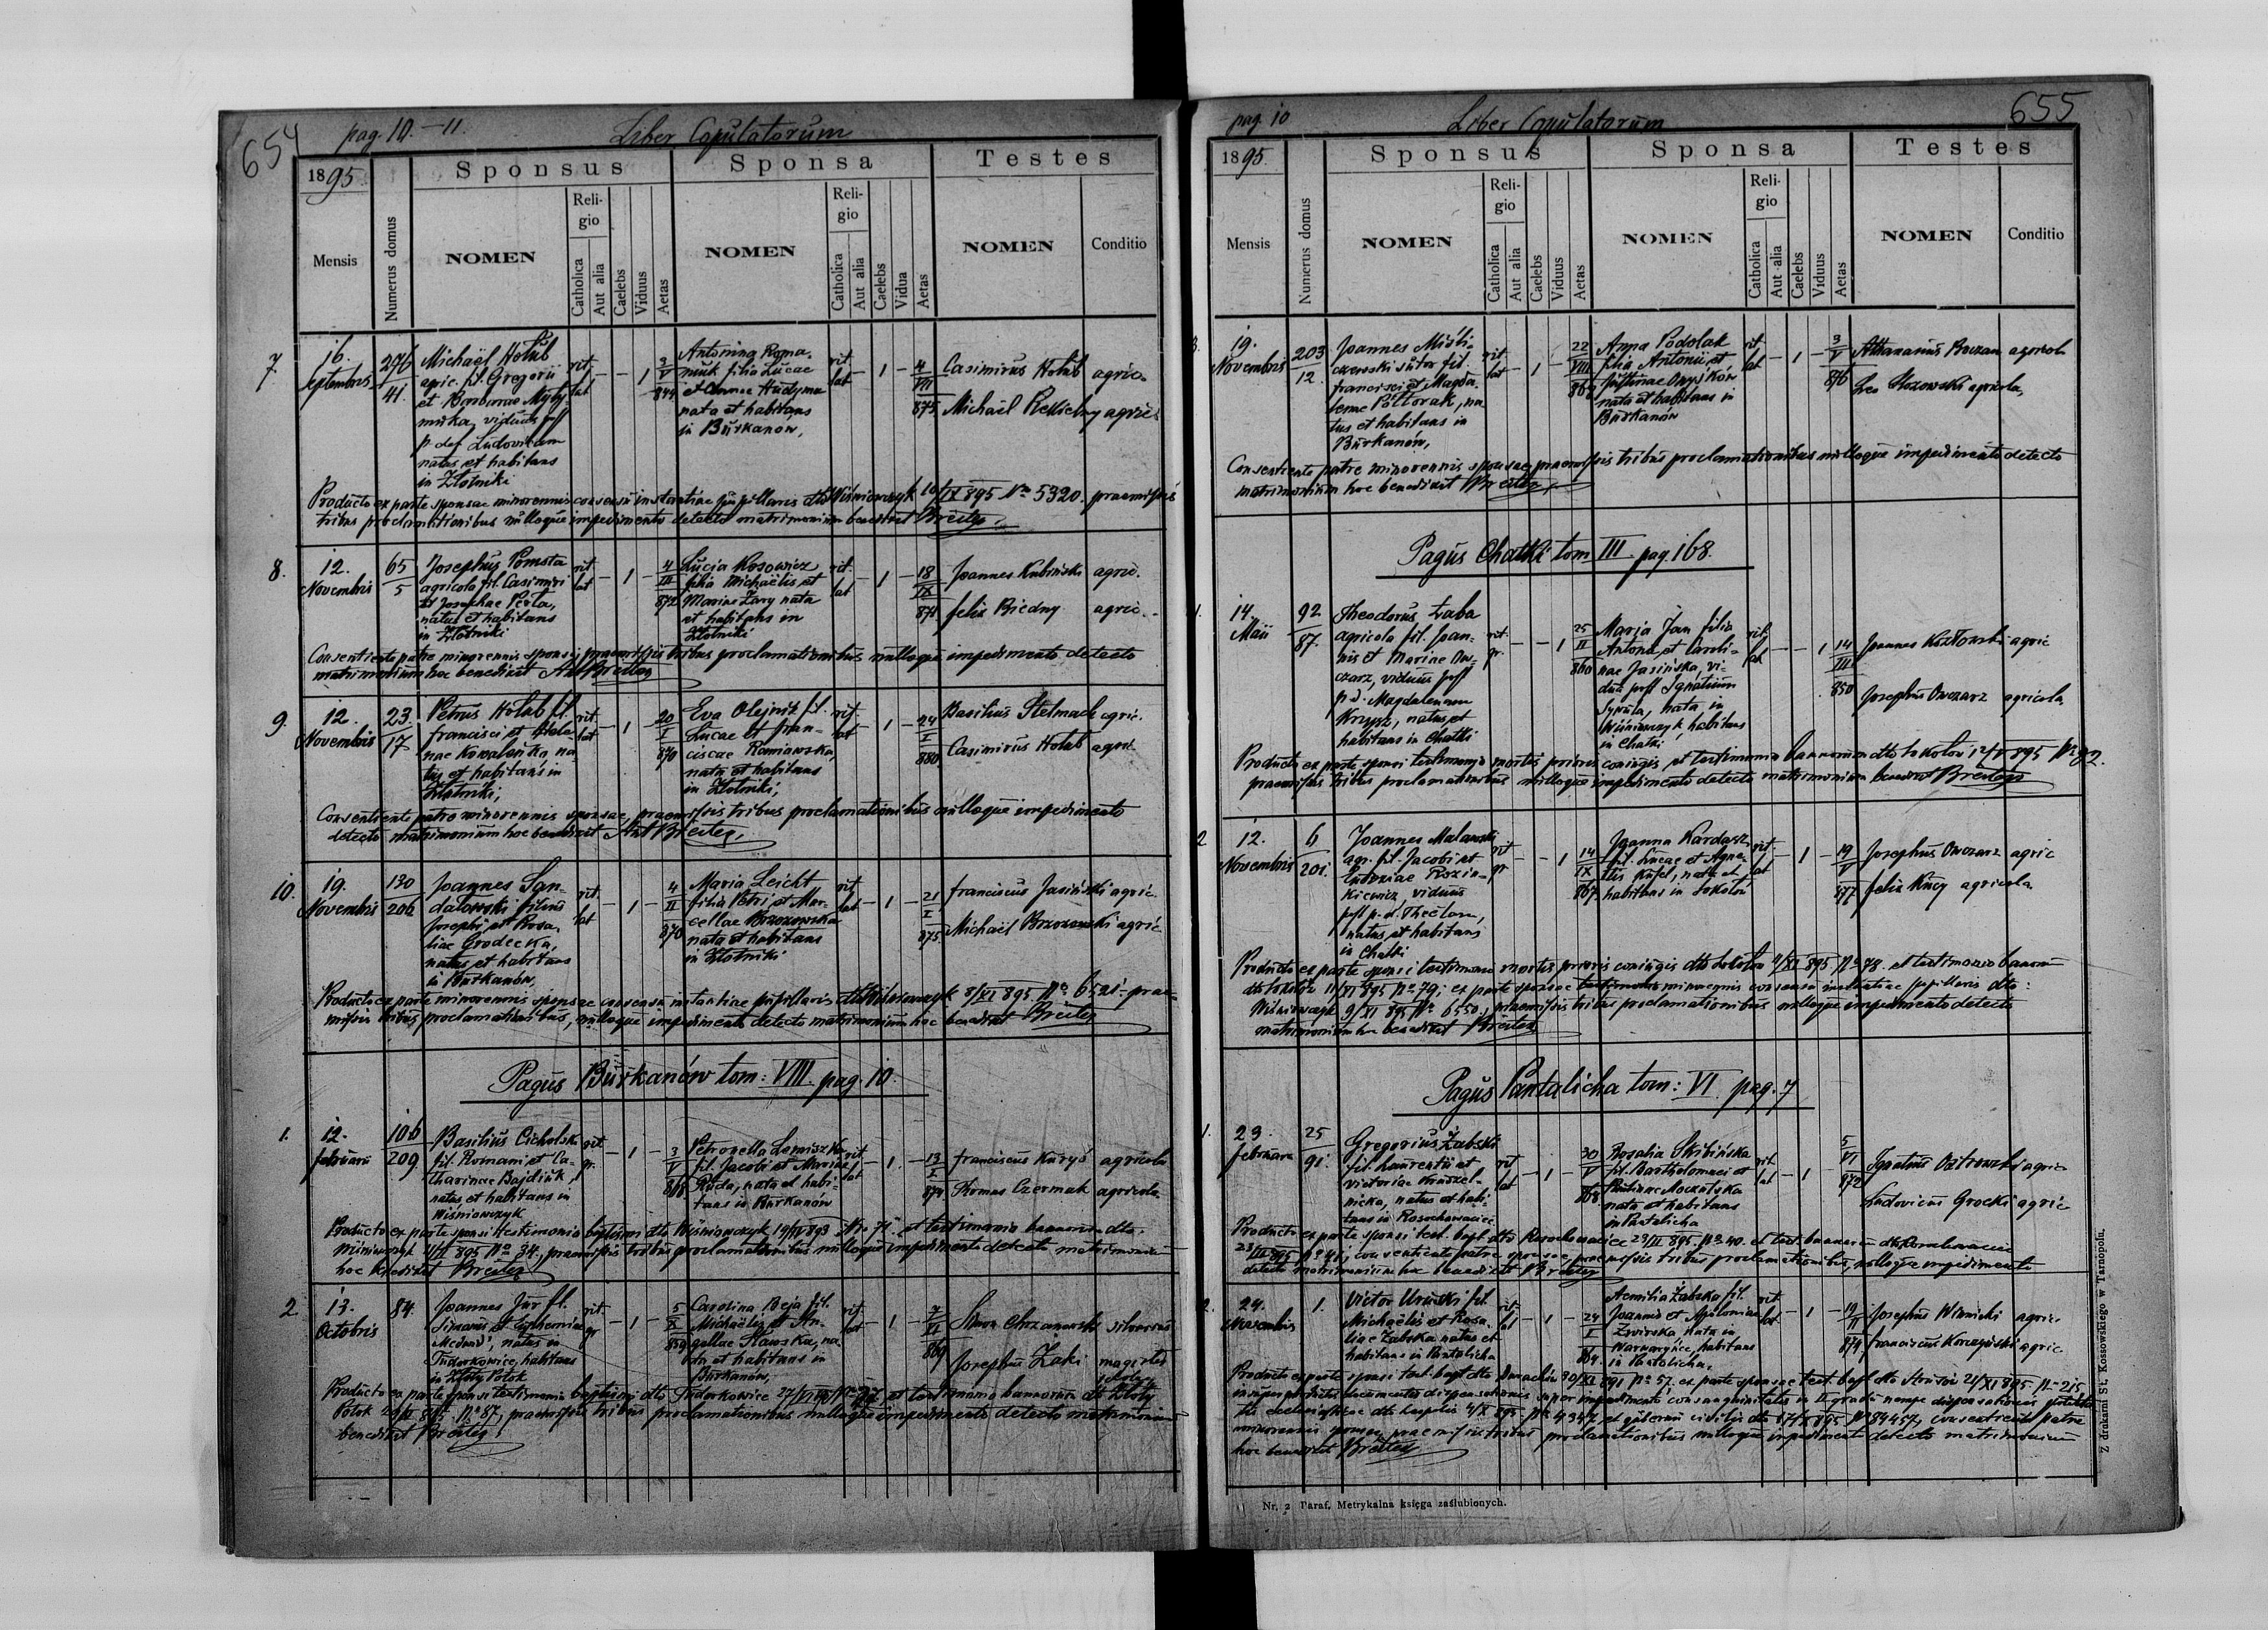 654
pag. 10.-11.
Liber Copulatorum
1895
Sponsus
Sponsa
Testes
Mensis
Numerus domus
NOMEN
Religio
Catholica
Aut alia
Caelebs
Viduus
Aetas
NOMEN
Religio
Catholica
Aut alia
Caelebs
Vidua
Aetas
NOMEN
Conditio
7.
16.
Septembris
276
41.
Michaël Holub
agric. fil. Gregorii
et
viduus post
p. def. Ludovicam
natus et habitans
in Złotniki
rit.
lat
1
Antonina Roma-
niuk filia Lucae
et Annae Hudyma
nata et habitans
in Burkanow,
rit
lat
1
4
VII
875
Casimirus Holub agric.
Michaël agric.
Producto ex parte sponsae minorennis consensu instantiae pupillaris dto Wiśniowczyk 10/IX 895 No 5320. praemissis
tribus proclamationibus nulloque impedimento detecto matrimonium benedixit Breiter
8.
12.
Novembris
65
5
Josephus Pomsta
agricola fil. Casimiri
et Josephae Perta,
natus et habitans
in Złotniki
rit
lat
1
4
III
872
Lucia Kosowicz
filia Michaëlis et
Mariae Zary nata
et habitans in
Złotniki
rit.
lat
1
18
IX
871
Joannes Kubiński agric.
Felix Biedny agric.
Consentiente patre minorennis sponsi, praemissis tribus proclamationibus nulloque impedimento detecto
matrimonium hoc benedixit Ant Breiter
9.
12.
Novembris
23.
17
Petrus Holub fil.
Francisci et Hele-
nae Kowalówka, na-
tus et habitans in
Złotniki,
rit.
lat
1
20
I
870
Eva Olejnik fil.
Lucae et Fran-
ciscae Romanowska,
nata et habitans
in Złotniki,
rit.
lat
1
24
I
880
Basilius Stelmach agric.
Casimirus Holub agric.
Consentiente patre minorennis sponsae, praemissis tribus proclamationibus nulloque impedimento
detecto matrimonium hoc benedixit Ant Breiter,
10.
19.
Novembris
130
206
Joannes San-
dałowski filius
Josephi et Rosa-
liae Grodecka,
natus et habitans
in Burkanów,
rit.
lat
1
4
II
870
Maria Leicht
filia Petri et Mar-
cellae Brzozowska
nata et habitans
in Złotniki
rit
lat
1
21
I
875.
Franciscus Jasiński agric.
Michaël Brzozowski agric.
Producto ex parte minorennis sponsae consensu instantiae pupillaris dto Wiśniowczyk 8/XI 895 No 6521. prae-
missis tribus proclamationibus, nulloque impedimento detecto matrimonium hoc benedixit Breiter
Pagus Burkanów tom: VIII. pag. 10.
1.
12.
Februarii
106
209.
Basilius Cicholski
fil. Romani et Ca-
tharinae Bajdiuk,
natus et habitans in
Wiśniowczyk
rit.
gr.
1
3
V
868
Petronella Lemiszka
fil. Jacobi et Mariae
Ruda, nata et habi-
tans in Burkanów
rit.
lat
1
13
I
874
Franciscus Kuryś agricola
Thomas Czermak agricola
Producto ex parte sponsi testimonio baptismi dto Wiśniowczyk 19/IV 893 No 71. et testimonio bannorum dto.
Wiśniowczyk 4/II 895 No 34., praemissis tribus proclamationibus nulloque impedimento detecto matrimonium
hoc benedixit Breiter
2
13.
Octobris
84.
Joannes Jur fil.
Simeonis et Euphemiae
natus in
Tudorkowice, habitans
in Złoty Potok
rit.
gr
1
5
X
859
Carolina Beja fil.
Michaëlis et An-
gellae Sławska, na-
ta et habitans in
Burkanów,
rit
lat
1
7
VI
869
Simon Chrzanowski silvarius
Josephus Żaki magister
Producto ex parte sponsi testimonio baptismi dto Tudorkowice et testimonio bannorum dto Złoty
Potok No 87, praemissis tribus proclamationibus nulloque impedimento detecto matrimonium
benedixit Breiter
655
pag. 10
Liber Copulatorum
1895.
Sponsus
Sponsa
Testes
Mensis
Numerus domus
NOMEN
Religio
Catholica
Aut alia
Caelebs
Viduus
Aetas
NOMEN
Religio
Catholica
Aut alia
Caelebs
Viduus
Aetas
NOMEN
Conditio
3.
19.
Novembris
203
12.
Joannes
sutor fil.
Francisci et Magda-
lenae Półtorak, na-
tus et habitans in
Burkanów,
rit.
lat
1
22
VIII
868
Anna Podolak
filia Antonii et
Justinae Onyśków
nata et habitans in
Burkanów
rit
lat
1
3
V
876
Athanasius Boczan agricola
Leo agricola,
Consentiente patre minorennis sponsae, praemissis tribus proclamationibus nulloque impedimento detecto
matrimonium hoc benedixit Breiter
Pagus Chatki tom III. pag. 168.
1.
14.
Maii
92
87.
Theodorus Żaba
agricola fil. Joan-
nis et Mariae Ow-
czarz, viduus post
p. d. Magdalenam
Krzysz, natus et
habitans in Chatki
rit.
gr.
1
25
II
860
Maria Jan filia
Antonii et Caroli-
nae Jasińska, vi-
dua post Ignatium
nata in
Wiśniowczyk habitans
in Chatki
rit
lat
1
14
III
850
Joannes Kozłowski agric
Josephus Owczarz agricola
Producto ex parte sponsi testimonio mortis prioris coniugis, et testimonio bannorum dto Sokołów 12/V 895 No 32.
praemissis tribus proclamationibus nulloque impedimento detecto matrimonium benedixit Breiter
2
12.
Novembris
6
201.
Joannes Malawski
agr. fil. Jacobi et
Rozin-
kiewicz, viduus
post p. d. Theclam,
natus et habitans
in Chatki
rit
gr
1
14
IX
867.
Joanna Kardasz
fil. Lucae et Agne-
tis Kufel, nata et
habitans in Sokołów
rit.
lat
1
19
V
877
Josephus Owczarz agric
Felix Kucy agricola
Producto ex parte sponsi testimonio mortis prioris coniugis dto Sokołów 9/XI 895 No 78. et testimonio bannorum
dto Sokołów 11/XI 895 No 79., ex parte sponsae minorennis consensu instantiae pupillaris dto:
Wiśniowczyk 9/XI 895 No 6550., praemissis tribus proclamationibus nulloque impedimento detecto
matrimonium hoc benedixit Breiter
Pagus Pantalicha tom: VI. pag. 7
1.
23.
Februarii
25
91.
Gregorius Żabski
fil. Laurentii et
Victoriae
natus et habi-
tans in Rosochowaciec
rit
lat
1
30
868
Rosalia Skibińska
fil. Bartholomaei et
Paulinae
nata et habitans
in Pantalicha
rit
lat
1
5
VI
872
Ignatius Ostrowski agric
Ludovicus Grocki agric
Producto ex parte sponsi test. bapt dto Rosochowaciec 23/II 895. No 40. et test. bannorum dto Rosochowaciec
23/II 895 No 41, consentiente patre sponsae, praemissis tribus proclamationibus, nulloque impedimento
detecto matrimonium hoc benedixit Breiter
2.
24.
Novembris
1.
Victor Uruski fil.
Michaëlis et Rosa-
liae Żabska natus et
habitans in Pantalicha
rit.
lat
1
24
I
864.
Aemilia Żabska fil.
Joannis et Apoloniae
Zwirska, nata in
Warwaryńce, habitans
in Pantalicha.
rit
lat
1
19
II
874
Josephus agric.
Franciscus Korczyński agric
Producto ex parte sponsi test. bapt dto 30/XI 891 No 57. ex parte sponsae test. bapt dto Strusów 21/XI 895 No 215
insuper productis documentis dispensationis super impedimento consanguinitatis in II gradu nempe dispensationis
ecclesiasticae dto Leopolis 4/X 895 No 4347 et gubernii civilis dto 895 No 84457, consentiente patre
minorennis sponsae, praemissis tribus proclamationibus nulloque impedimento detecto matrimonium
hoc benedixit Breiter
Nr. 2 Paraf. Metrykalna księga zaślubionych.
Z drukarni St. Kossowskiego w Tarnopolu.